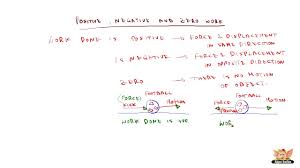 POSITIVE, NEGATIVE AND ZERO WORK
WORK DONE IS POSITIVE → FORCE & DISPLACEMENT
IN SAME DIRECTION
IS NEGATIVE → FORCE & DISPLACEMENT
IN OPPOSITE DIRECTION
ZERO → THERE IS NO MOTION
OF OBJECT
(FORCE) FOOTBALL
KICK MOTION
WORK DONE IS +VE
FORCE FOOTBALL
MOTION
WOR